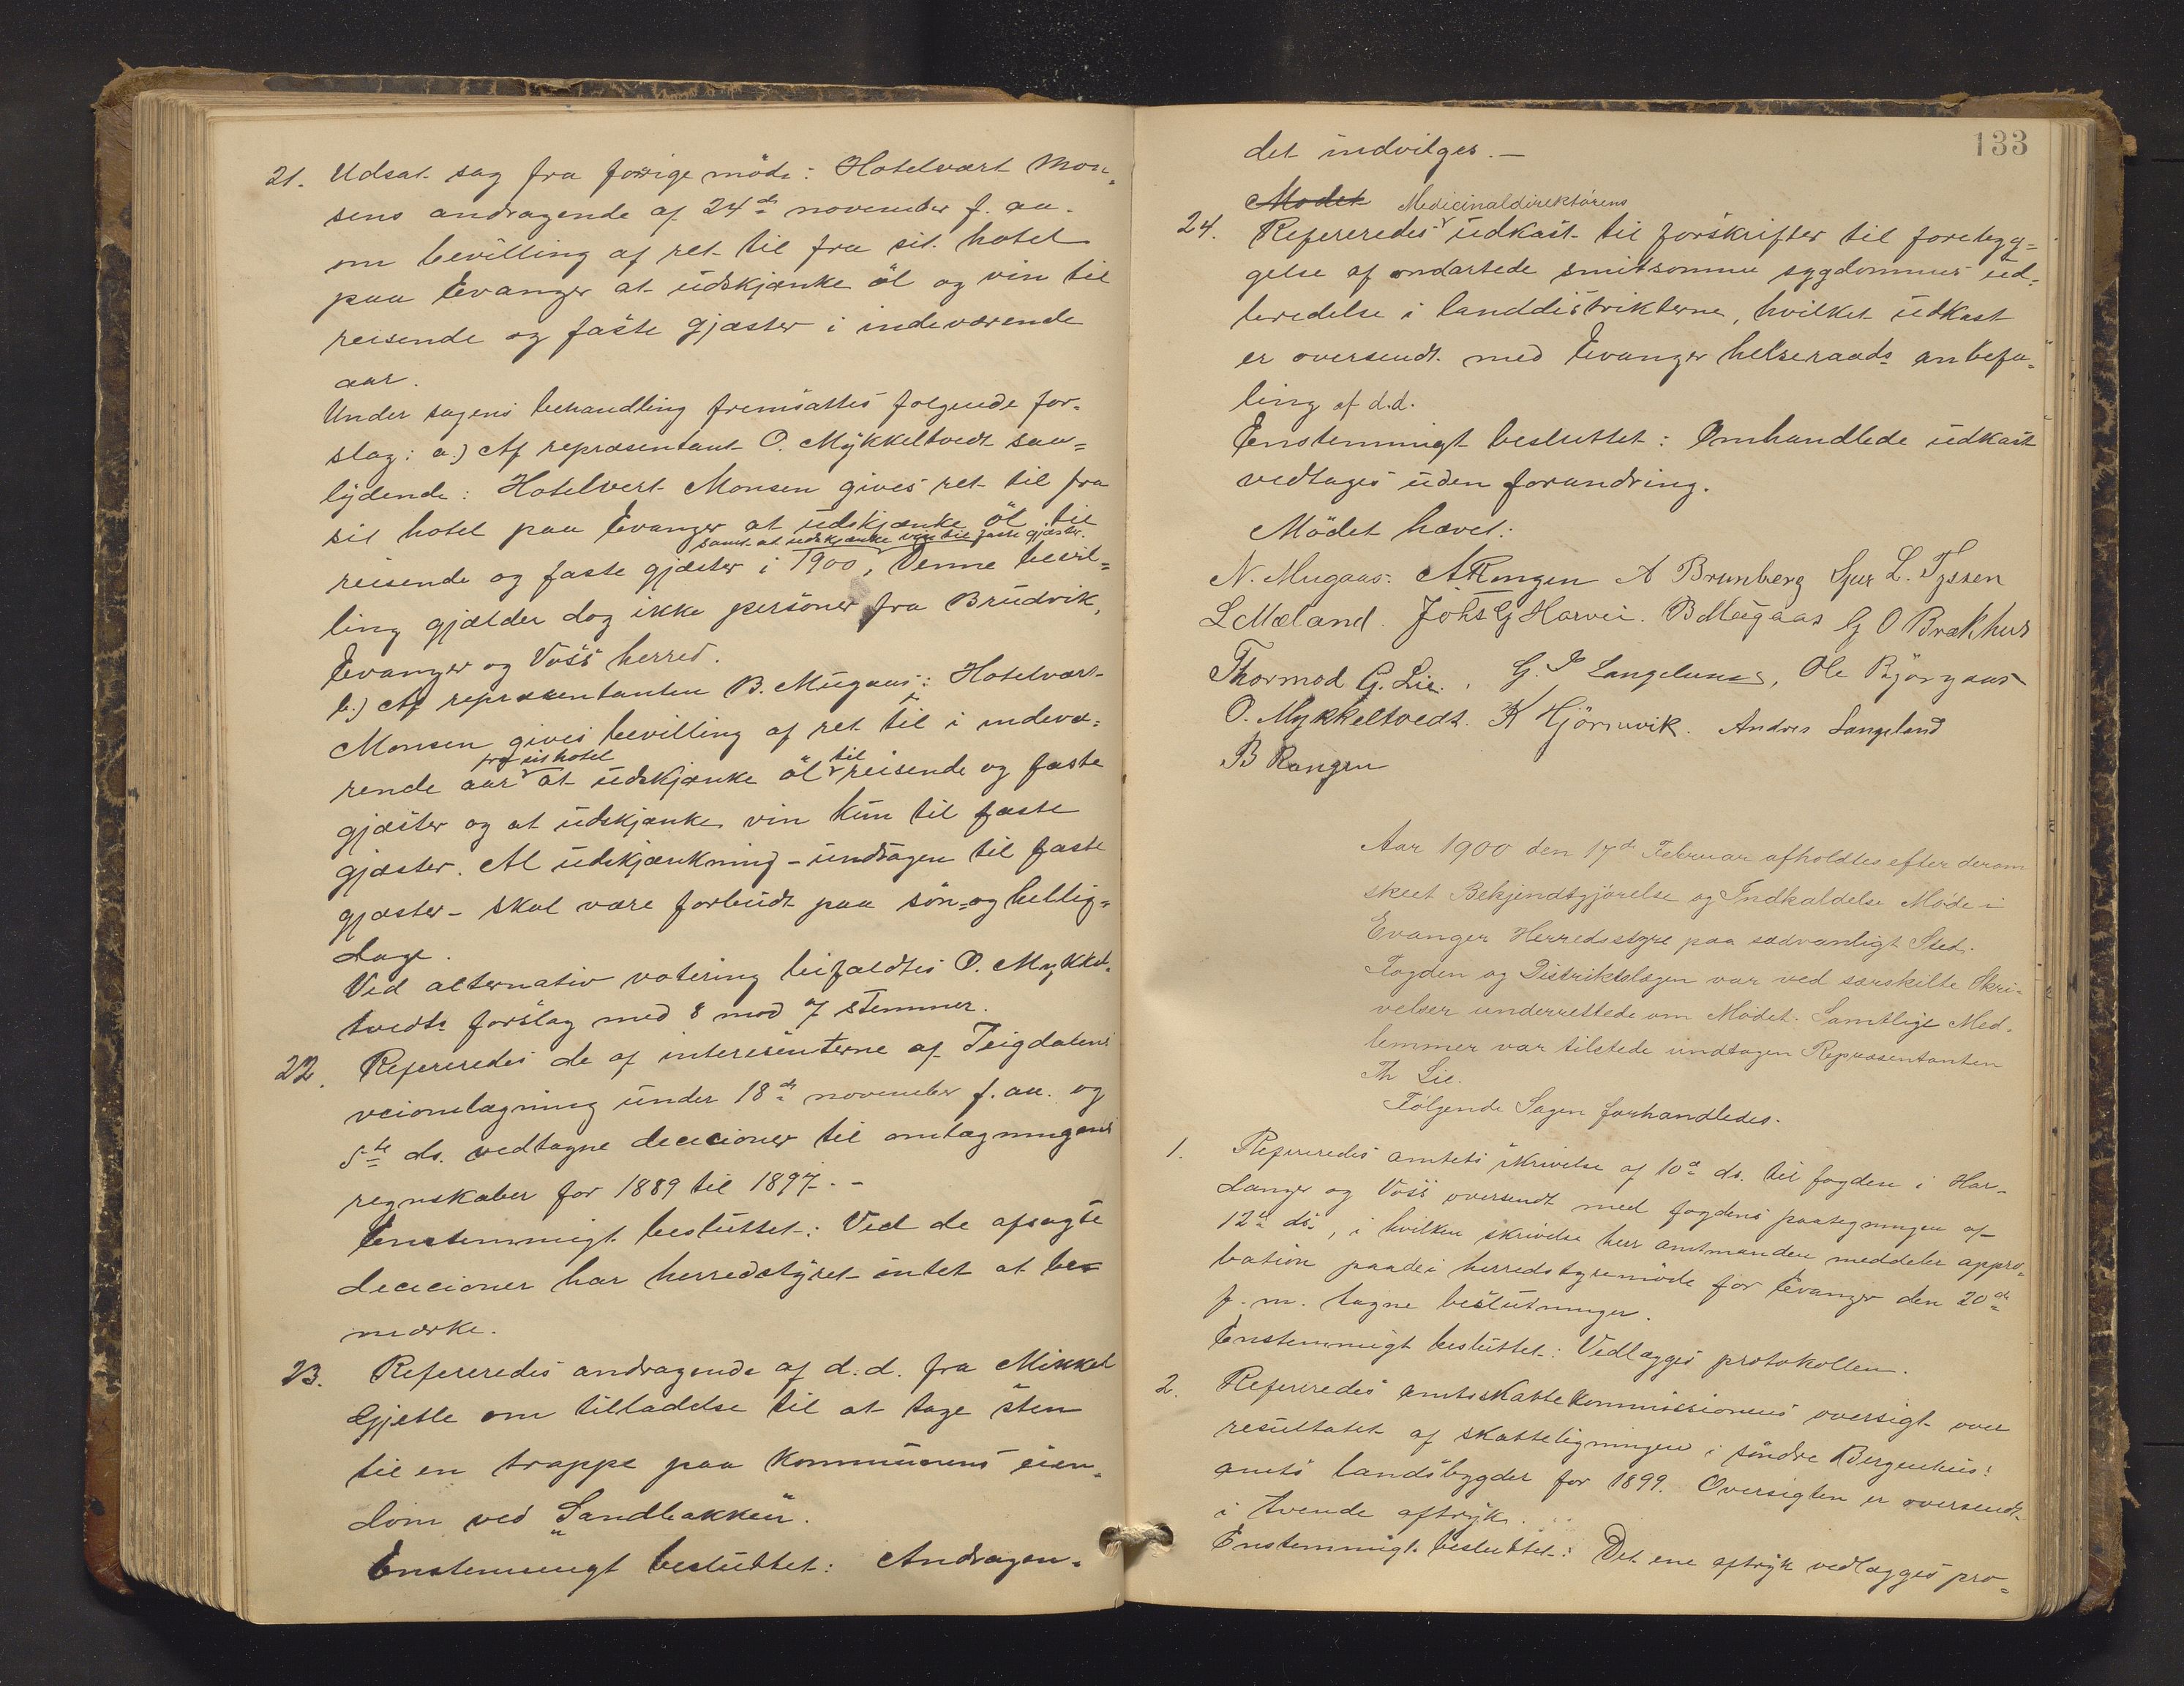 21. Udsat sag fra forrige möde: Hotelvært Mon-
sens andragende af 24de november f. aa.
om bevilling af ret til fra sit hotel
paa Evanger at udskjænke öl og vin til
reisende og faste gjæster i indeværende
aar.
Under sagens behandling fremsattes folgende for-
slag: a.) Af repræsentant O. Mykkeltvedt saa-
lydende: Hotelvert Monsen gives ret til fra
sit hotel paa Evanger at udskjænke öl til
samt at udskjænke vin til faste gjæster.
reisende og faste gjæster i 1900, Denne bevil-
ling gjælder dog ikke personer fra Brudvik,
Evanger og Voss herred.
b.) Af repræsentanten B. Mugaas: Hotelvært
Monsen gives bevilling af ret til i indevæ-
fra sit hotel til
rende aar at udskjænke öl reisende og faste
gjæster og at udskjænke vin kun til faste
gjæster. Al udskjænkning - undtagen til faste
gjæster - skal være forbudt paa sön- og hellig-
dage.
Ved alternativ votering bifaldtes O. Mykkel-
tvedts forslag med 8 mod 7 stemmer.
22. Refereredes de af interesenterne af Teigdalens
veiomlægning under 18de november f. aa. og
5te ds. vedtagne decicioner til omlægningens
regnskaber for 1889 til 1897. -
Enstemmigt besluttet: Ved de afsagte
decicioner har herredstyret intet at be-
mærke.
23. Refereredes andragende af d.d. fra Mikkel
Gjelle om tilladelse til at tage sten
til en trappe paa kommunens eien-
dom ved "Sandbakken".
Enstemmigt besluttet: Andragen-
133
det indvilges. -
Modet Medicinaldirektörens
24. Refereredes udkast til forskrifter til forebyg-
gelse af ondartede smitsomme sygdommes ud-
bredelse i landdistrikterne, hvilket udkast
er oversendt med Evanger helseraads anbefa-
ling af d.d.
Enstemmigt besluttet: Omhandlede udkast
vedtages uden forandring.
Mödet hævet:
N. Mugaas. A Rongen A Brunberg Sjur L. Tyssen
L Mæland. Johs G Horvei. B Mugaas G O Brækhus
Thormod G. Lie. G. J Langeland, Ole Björgaas
O. Mykkeltvedt. K Hjörnevik. Andres Langeland
B Rongen
Aar 1900 den 17de Februar afholdtes efter derom
skeet Bekjendtgjörelse og Indkaldelse Möde i
Evanger Herredsstyre paa sædvanligt Sted.
Fogden og Distriktslægen var ved særskilte Skri-
velser underrettede om Mödet. Samtlige Med-
lemmer var tilstede undtagen Repræsentanten
Th Lie.
Fölgende Sager forhandledes.
1. Refereredes amtets skrivelse af 10de ds. til fogden i Har-
danger og Voss oversendt med fogdens paategningen af
12te ds., i hvilken skrivelse herr amtmanden meddeler appro-
bation paa de i herredsstyremöde for Evanger den 20de
f. m. tagne beslutninger.
Enstemmigt besluttet: Vedlægges protokollen.
2. Refereredes amtsskattekommissionens oversigt over
resultatet af skatteligningen i söndre Bergenhus
amts landsbygder for 1899. Oversigten er oversendt
i tvende aftryk.
Enstemmigt besluttet: Det ene aftryk vedlægges pro-